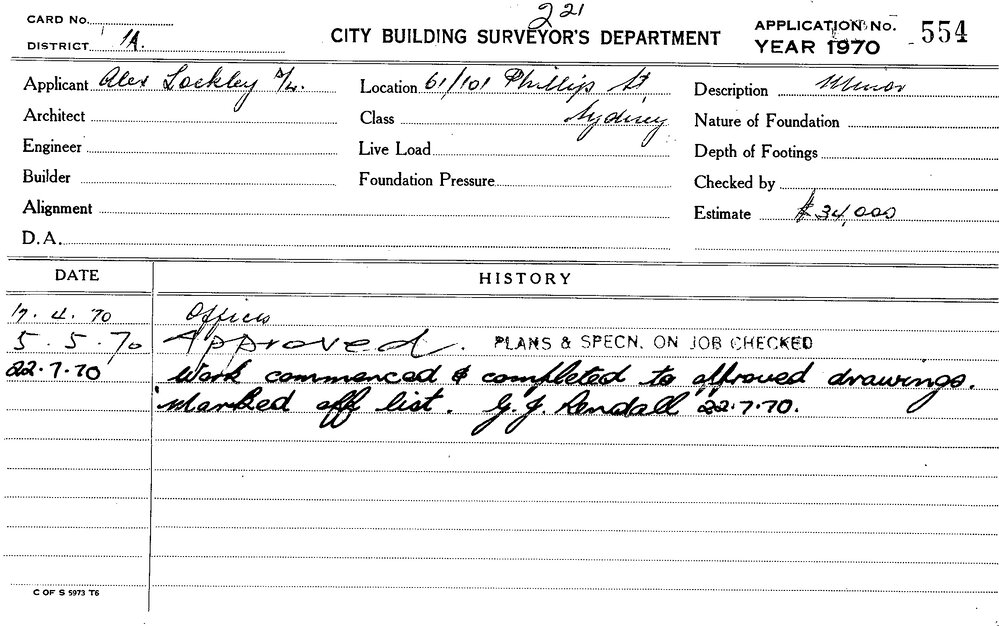 CARD No.
221
DISTRICT 1A.
CITY BUILDING SURVEYOR'S DEPARTMENT
APPLICATION No. 554
YEAR 1970
Applicant Alex Lockley P/L.
Location 61/101 Phillip St,
Description Minor
Architect
Class Sydney
Nature of Foundation
Engineer
Live Load
Depth of Footings
Builder
Foundation Pressure
Checked by
Alignment
Estimate $34,000
D.A.
DATE HISTORY
17.4.70 Offices
5.5.70 Approved. PLANS & SPECN. ON JOB CHECKED
22.7.70 Work commenced & completed to approved drawings.
Marked off list. G.J. Rendall 22.7.70.
C OF S 5973 T6